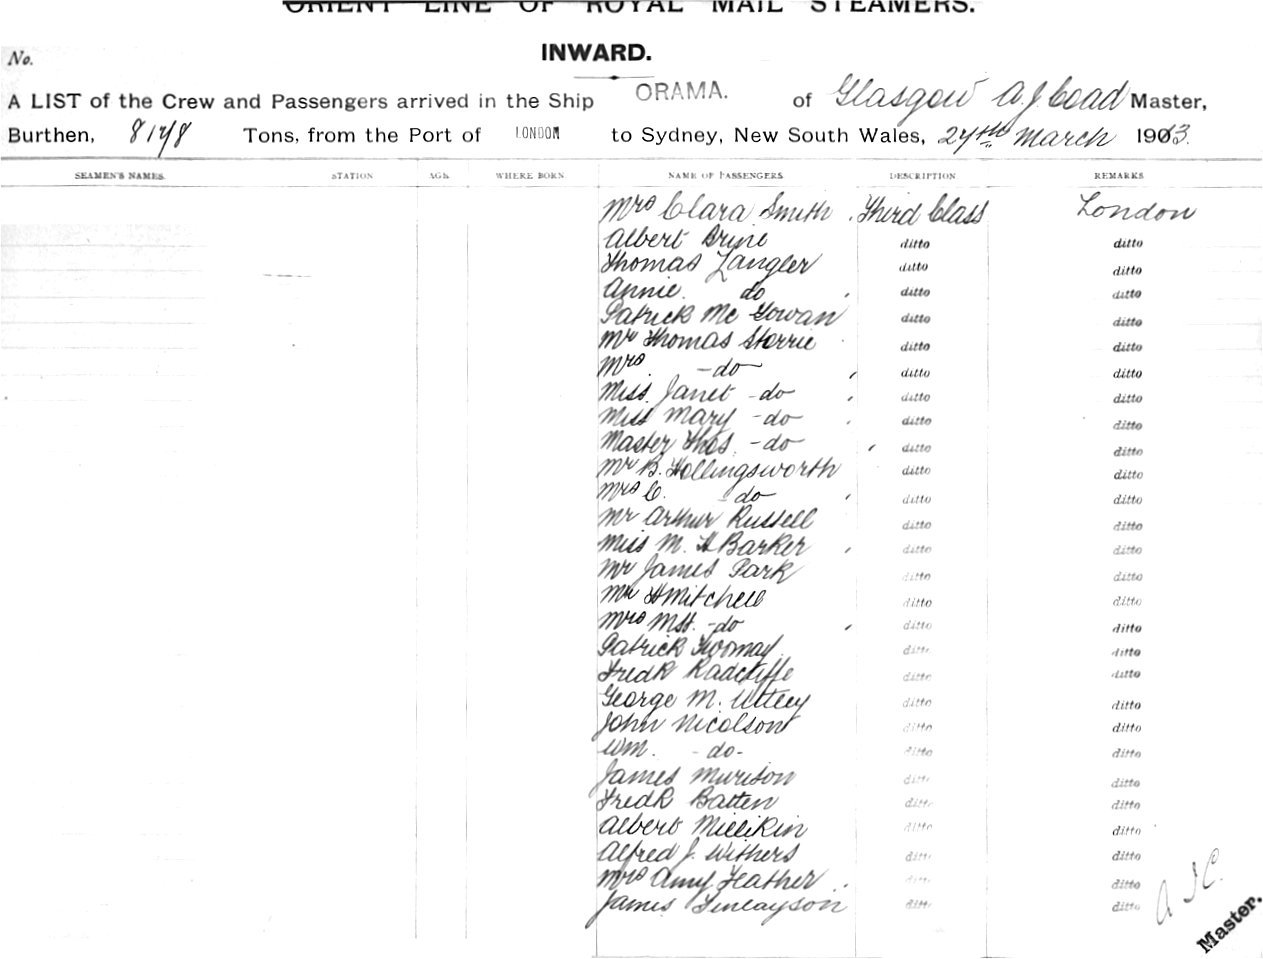 ORIENT LINE OF ROYAL MAIL STEAMERS.
INWARD.
No.
A LIST of the Crew and Passengers arrived in the Ship ORAMA. of Glasgow A. J. Coad Master,
Burthen, 8178 Tons, from the Port of LONDON to Sydney, New South Wales, 27th March 1913.
SEAMEN'S NAMES. STATION AGE WHERE BORN NAME OF PASSENGERS DESCRIPTION REMARKS
Mrs Clara Smith Third Class London
Albert Brine ditto ditto
Thomas Langler ditto ditto
Annie do ditto ditto
Patrick Mc Gowan ditto ditto
Mr Thomas Storrie ditto ditto
Mrs - do ditto ditto
Miss Janet - do ditto ditto
Miss Mary - do ditto ditto
Master Thos. - do ditto ditto
Mr B. Hollingsworth ditto ditto
Mrs C. - do ditto ditto
Mr Arthur Russell ditto ditto
Miss M. H Barker ditto ditto
Mr James Park ditto ditto
Mr H Mitchell ditto ditto
Mrs - do ditto ditto
Patrick Twomay ditto ditto
Fredk Radcliffe ditto ditto
George M. Uttley ditto ditto
John Nicolson ditto ditto
Wm. - do - ditto ditto
James Murison ditto ditto
Fredk Batten ditto ditto
Albert Millikin ditto ditto
Alfred J. Withers ditto ditto
Mrs Amy Feather ditto ditto
James Finlayson ditto ditto
A J C.
Master.